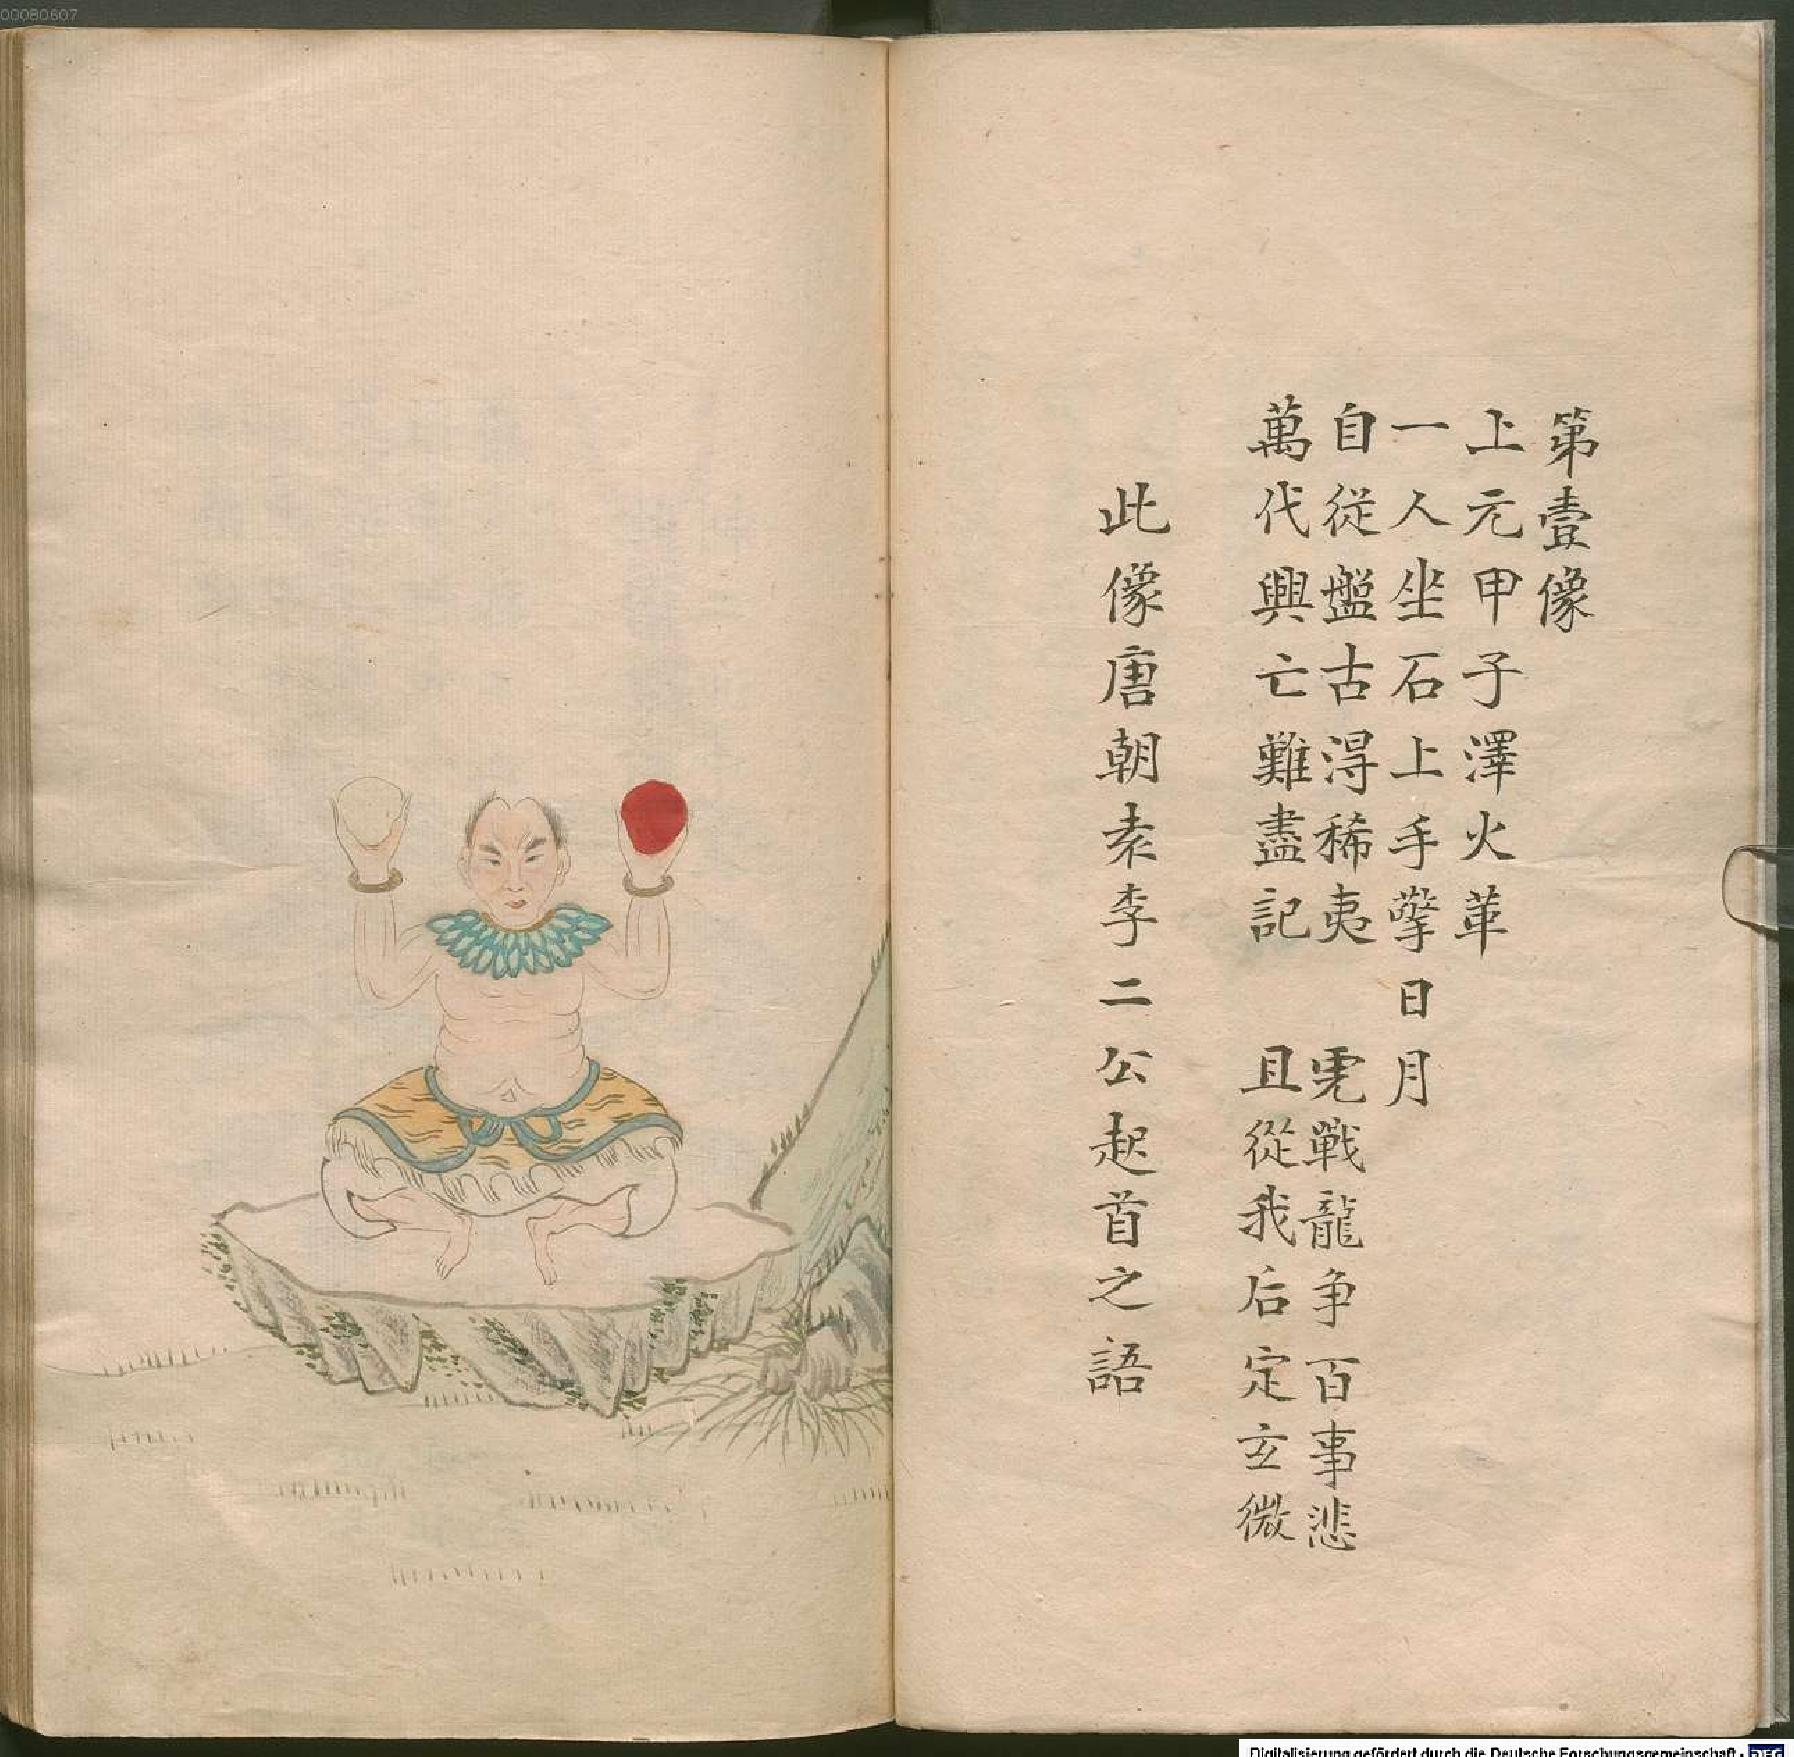 00080607
第壹像
上元甲子澤火革
一人坐石上手擎日月
自從盤古淂稀夷　虎戰龍争百事悲
萬代興亡難盡記　且從我后定玄微
此像唐朝袁李二公起首之語
Digitalisierung gefördert durch die Deutsche Forschungsgemeinschaft -